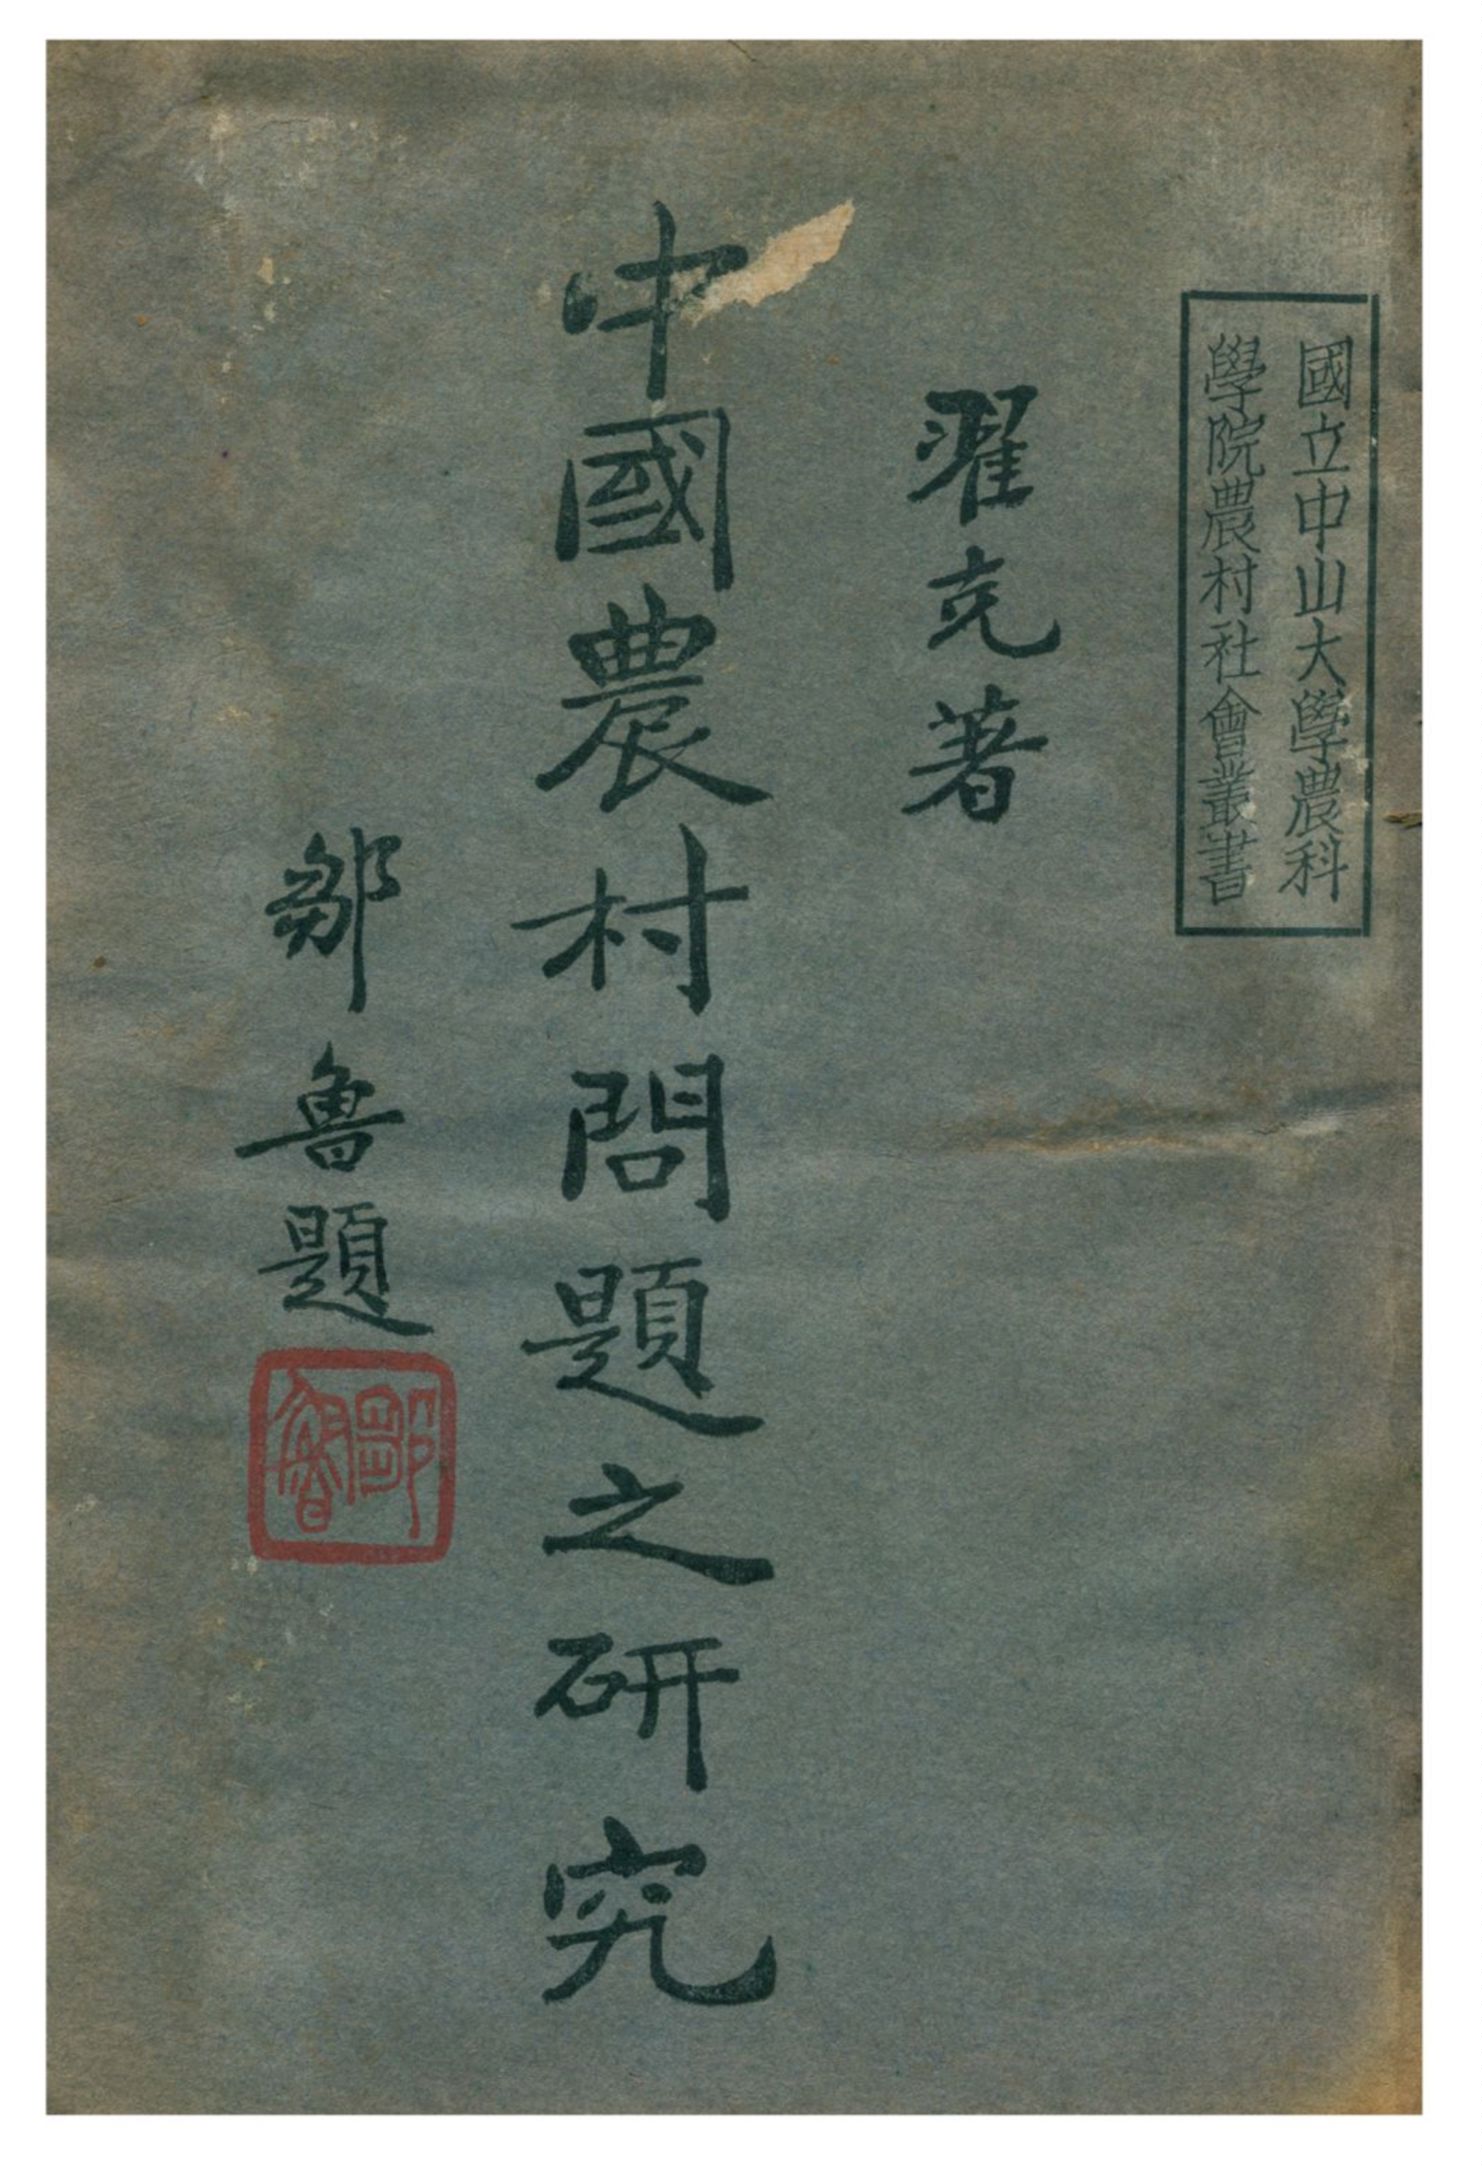 國立中山大學農科
學院農村社會叢書
翟克著
中國農村問題之研究
鄒魯題
鄒魯